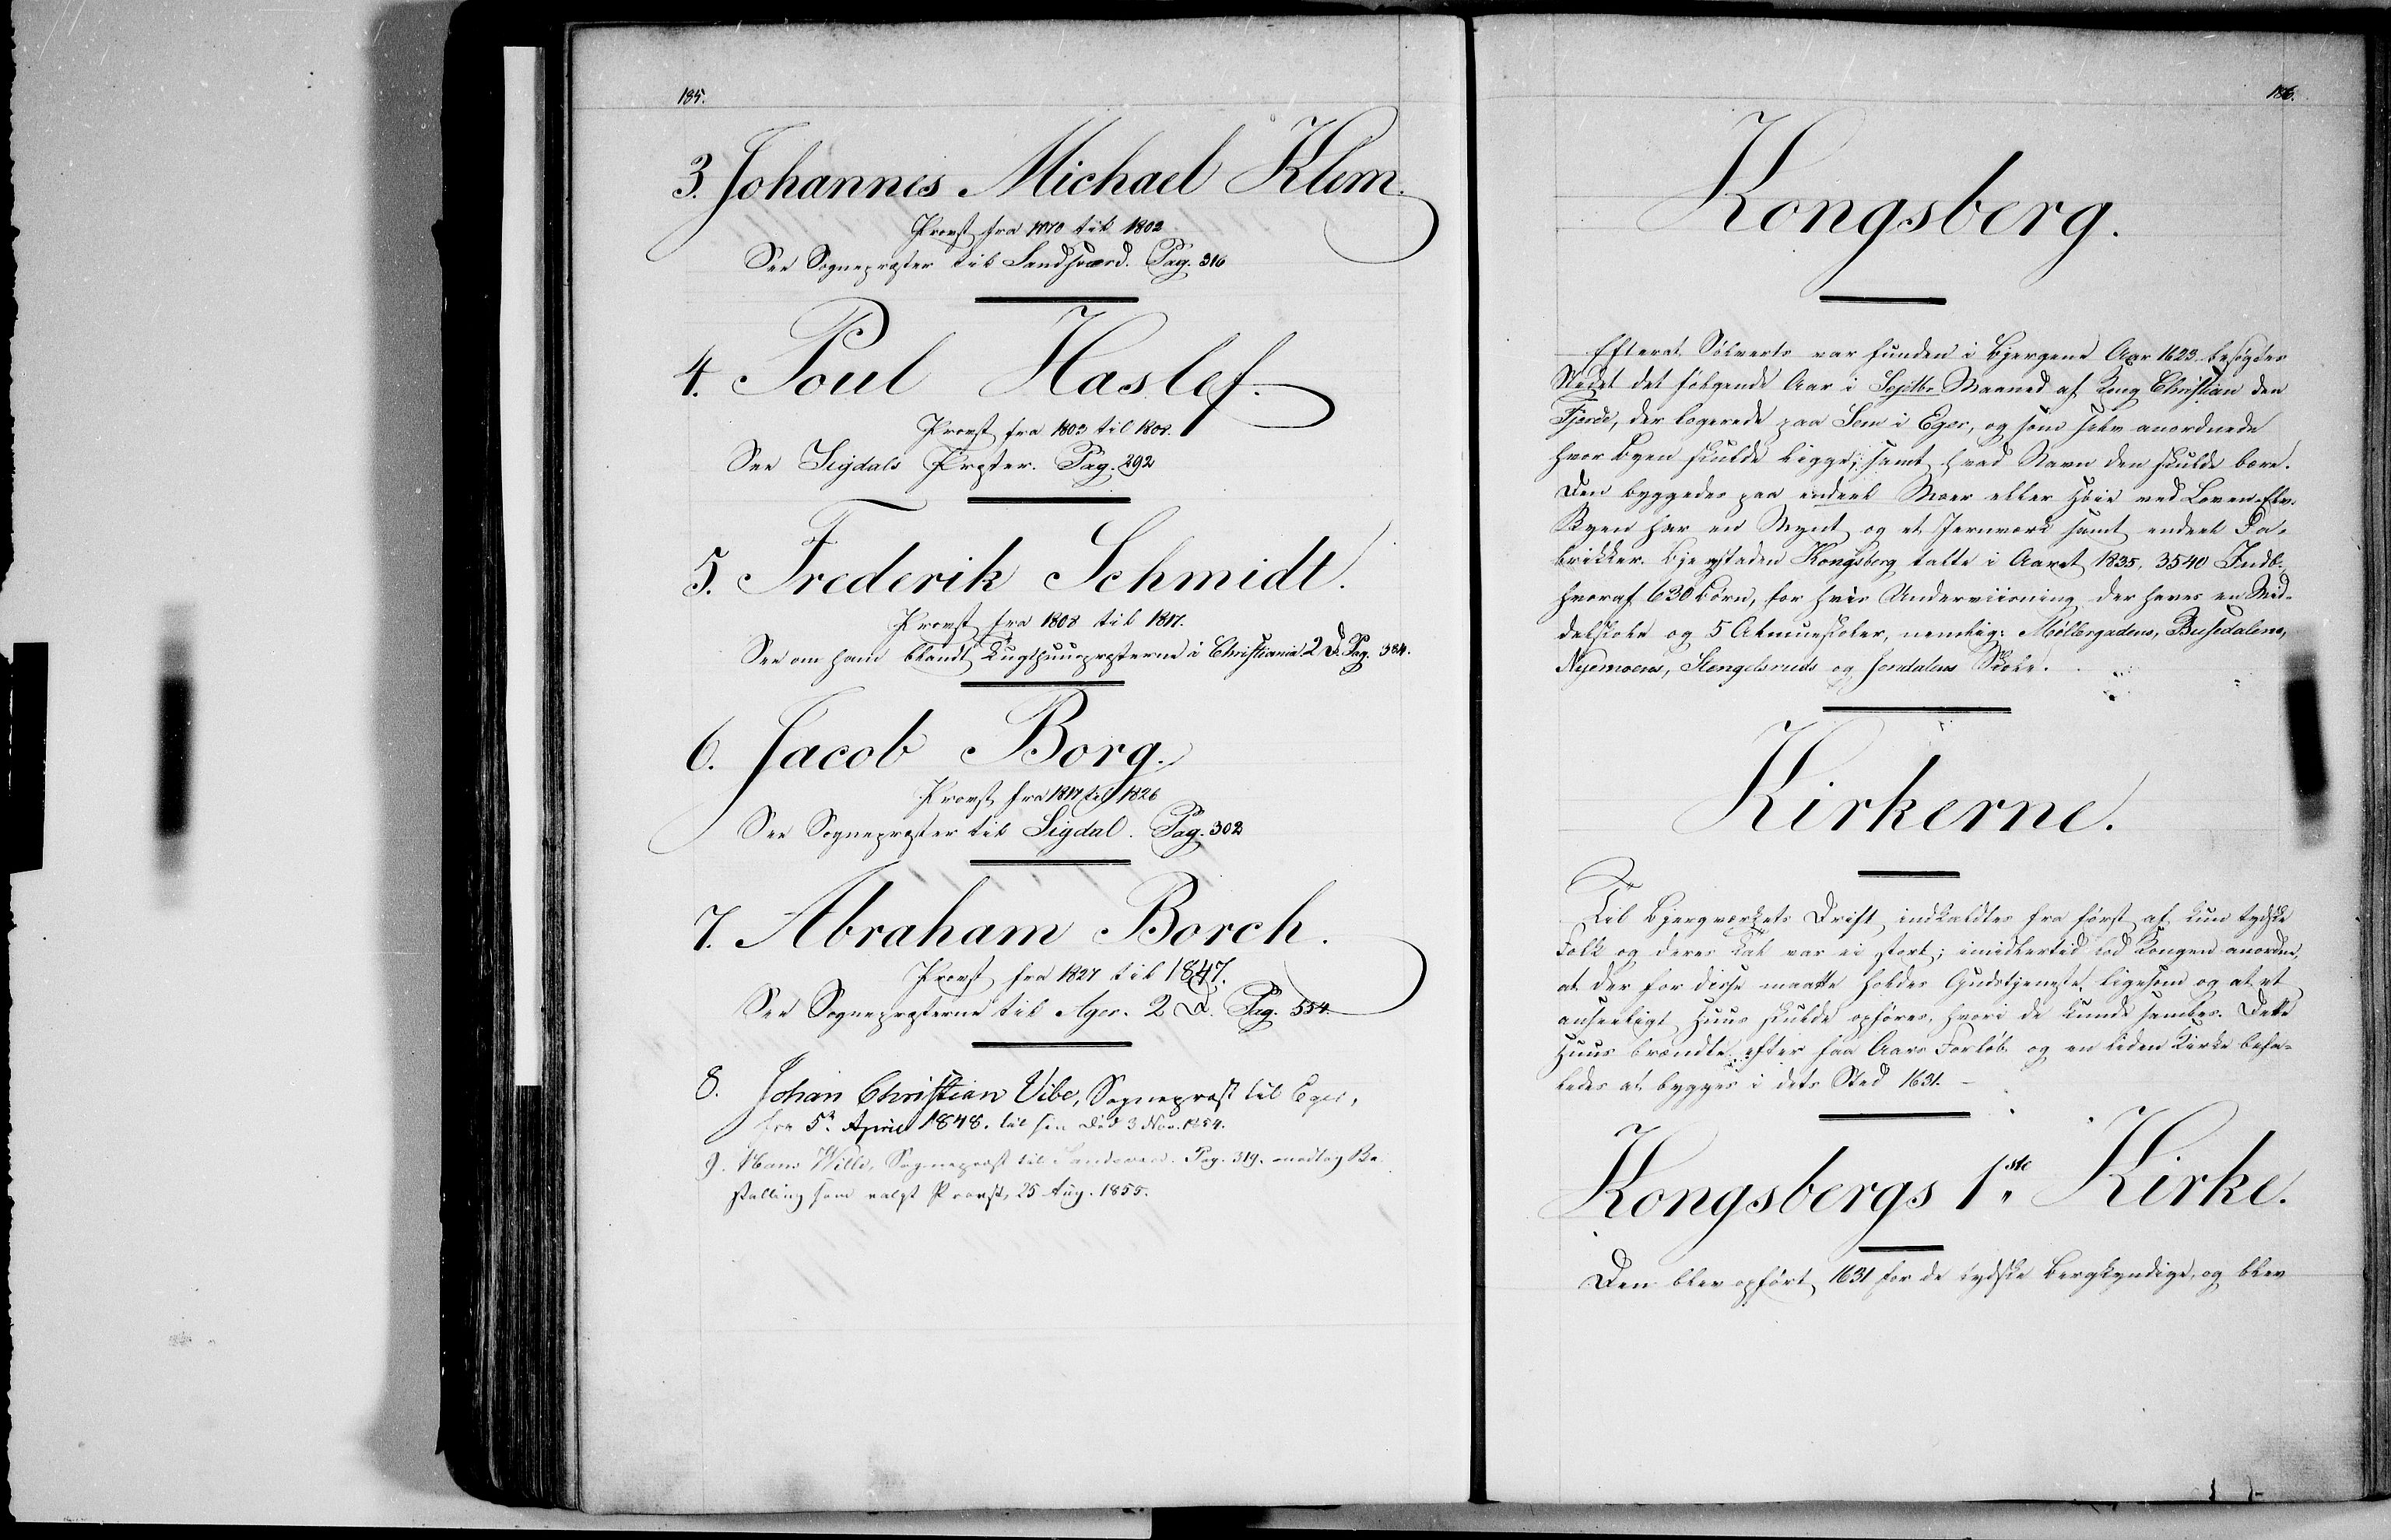 185.
3. Johannes Michael Klem.
Provst fra 1770 til 1802
See Sognepræster til Sandsværd. Pag. 316
4. Poul Haslef.
Provst fra 1803 til 1808.
See Sigdals Præster. Pag. 292
5. Frederik Schmidt.
Provst fra 1808 til 1817.
See om ham blandt Tugthuuspræsterne i Christiania 2 D. Pag. 384.
6. Jacob Borg.
Provst fra 1817 til 1826
See Sognepræster til Sigdal. Pag. 302
7. Abraham Borch.
Provst fra 1827 til 1847.
See Sognepræsterne til Ager. 2 D. Pag. 554.
8. Johan Christian Vibe, Sognepræst til Eger,
fra 5 April 1848. til sin Död 3 Nov. 1854.
9. Hans Wille, Sognepræst til Sandsværd. Pag. 319. modtog Be-
stalling som valgt Provst, 25 Aug. 1855.
186.
Kongsberg.
Efterat Sölverts var funden i Bjergene Aar 1623 besögtes
Stedet det fölgende Aar i Septbr Maaned af Kong Christian den
Fjerde, der logerede paa Sem i Eger, og som selv anordnede
hvor Byen skulde ligge, samt hvad Navn den skulde bære.
Den byggedes paa endeel Moer eller Höie ved Loven-Elv.
Byen har en Mynt og et Jernværk samt endeel Fa-
brikker. Bjergstaden Kongsberg talte i Aaret 1835, 3540 Indb.,
hvoraf 630 Börn, for hvis Underviisning der haves en Mid-
delskole og 5 Almueskoler, nemlig: Möllergadens, Busedalens,
Nyemoens, Stengelsruds og Jondalens Skole.
Kirkerne.
Til Bjergværkets Drift indkaldtes fra först af kun tydske
Folk og deres Tal var ei stort; imidlertid lod Kongen anordne,
at der for disse maatte holdes Gudstjeneste, ligesom og at et
anseeligt Huus skulde opföres, hvori de kunde samles. Dette
Huus brændte efter faa Aars Forlöb og en liden Kirke befa-
ledes at bygges i dets Sted 1631. -
Kongsbergs 1ste Kirke.
Den blev opfört 1631 for de tydske Bergkyndige, og blev